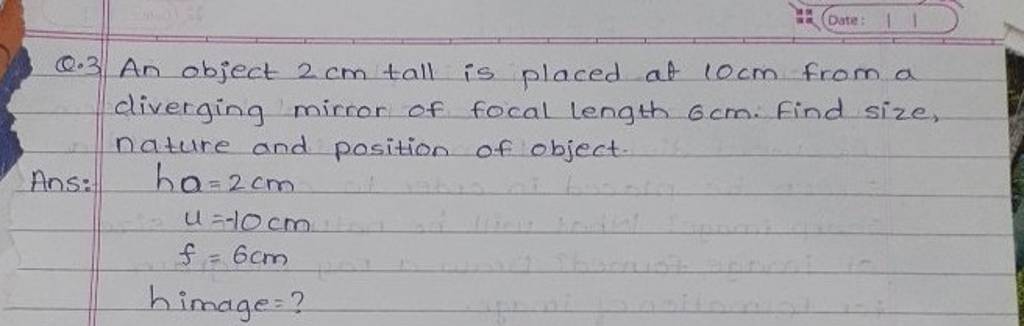 Date: | |
Q.3 An object 2cm tall is placed at 10cm from a
diverging mirror of focal length 6cm. Find size,
nature and position of object.
Ans: ho=2cm
u=-10cm
f = 6cm
himage=?